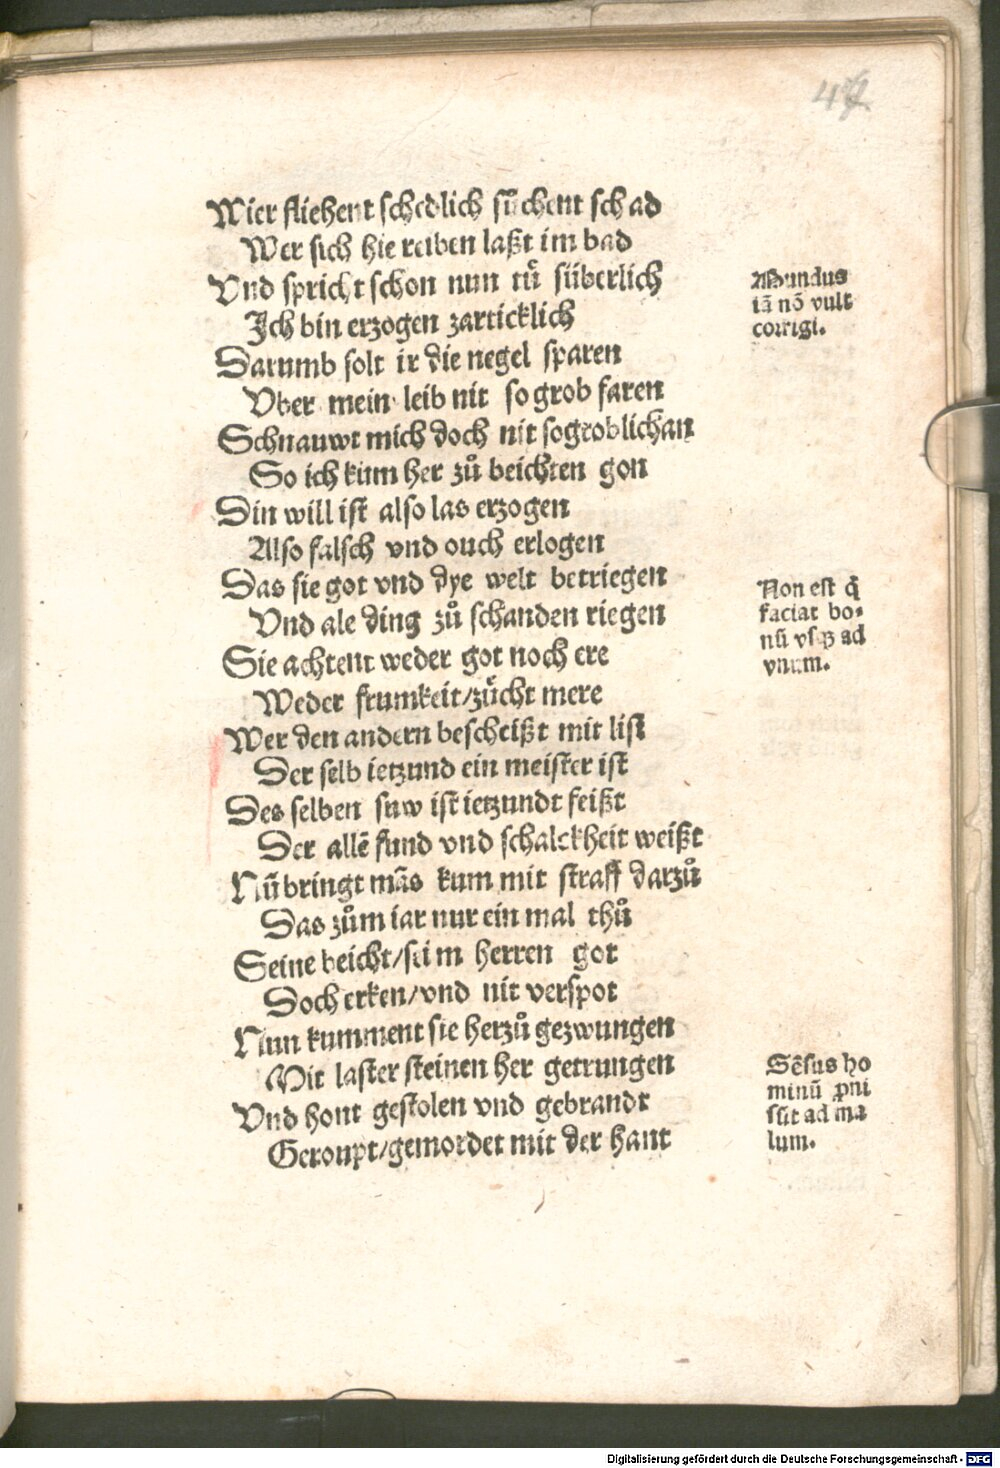 47
Wier fliehent schedlich sůchent schad
Wer sich hie reiben laßt im bad
Vnd spricht schon nun tů süberlich
Ich bin erzogen zarticklich
Darumb solt ir die negel sparen
Vber mein leib nit so grob faren
Schnauwt mich doch nit sogroblichan
So ich kum her zů beichten gon
Din will ist also las erzogen
Also falsch vnd ouch erlogen
Das sie got vnd dye welt betriegen
Vnd ale ding zů schanden riegen
Sie achtent weder got noch ere
Weder frumkeit/zücht mere
Wer den andern bescheißt mit list
Der selb ietzund ein meister ist
Des selben suw ist ietzundt feißt
Der allē fund vnd schalckheit weißt
Nū bringt mās kum mit straff darzů
Das zům iar nur ein mal thů
Seine beicht/seim herren got
Doch erken/vnd nit verspot
Nun kumment sie herzů gezwungen
Mit laster steinen her getrungen
Vnd hont gestolen vnd gebrandt
Geroupt/gemordet mit der hant
Mundus
iā nō vult
corrigi.
Non est q̄
faciat bo-
nū vsqꝫ ad
vnum.
Sēsus ho
minū ꝓni
sūt ad ma
lum.
Digitalisierung gefördert durch die Deutsche Forschungsgemeinschaft - DFG